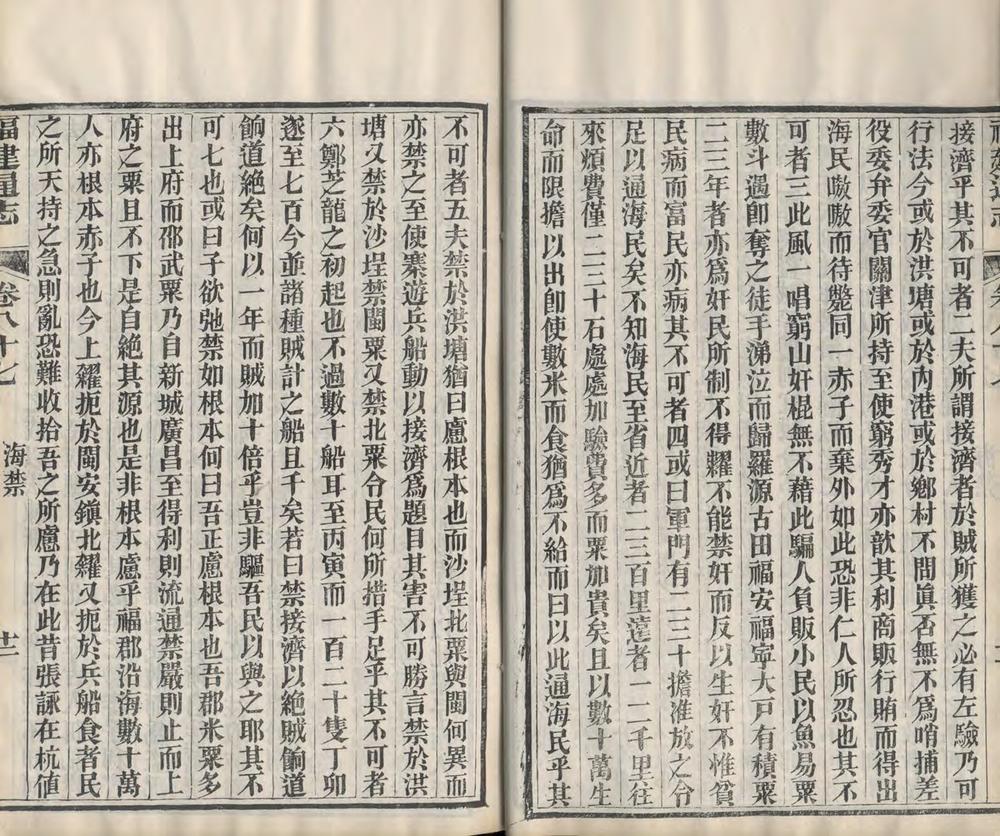 接濟乎其不可者二夫所謂接濟者於賊所獲之必有左驗乃可
行法今或於洪塘或於內港或於鄉村不問眞否無不爲哨捕差
役委弁委官關津所持至使窮秀才亦歆其利商販行賄而得出
海民嗷嗷而待斃同一赤子而棄外如此恐非仁人所忍也其不
可者三此風一唱窮山奸棍無不藉此騙人負販小民以魚易粟
數斗遇卽奪之徒手涕泣而歸羅源古田福安福寧大戸有積粟
二三年者亦爲奸民所制不得糶不能禁奸而反以生奸不惟貧
民病而富民亦病其不可者四或曰軍門有二三十擔准放之令
足以通海民矣不知海民至省近者二三百里遠者一二千里往
來煩費僅二三十石處處加驗費多而粟加貴矣且以數十萬生
命而限擔以出卽使數米而食猶爲不給而曰以此通海民乎其
不可者五夫禁於洪塘猶曰慮根本也而沙埕北粟與閩何異而
亦禁之至使寨遊兵船動以接濟爲題目其害不可勝言禁於洪
塘又禁於沙埕禁閩粟又禁北粟令民何所措手足乎其不可者
六鄭芝龍之初起也不過數十船耳至丙寅而一百二十隻丁卯
遂至七百今並諸種賊計之船且千矣若曰禁接濟以絕賊餉道
餉道絕矣何以一年而賊加十倍乎豈非驅吾民以與之耶其不
可七也或曰子欲弛禁如根本何曰吾正慮根本也吾郡米粟多
出上府而邵武粟乃自新城廣昌至得利則流通禁嚴則止而上
府之粟且不下是自絕其源也是非根本慮乎福郡沿海數十萬
人亦根本赤子也今上糴扼於閩安鎮北糴又扼於兵船食者民
之所天持之急則亂恐難收拾吾之所慮乃在此昔張詠在杭値
福建通志
卷八十七
海禁
廿一